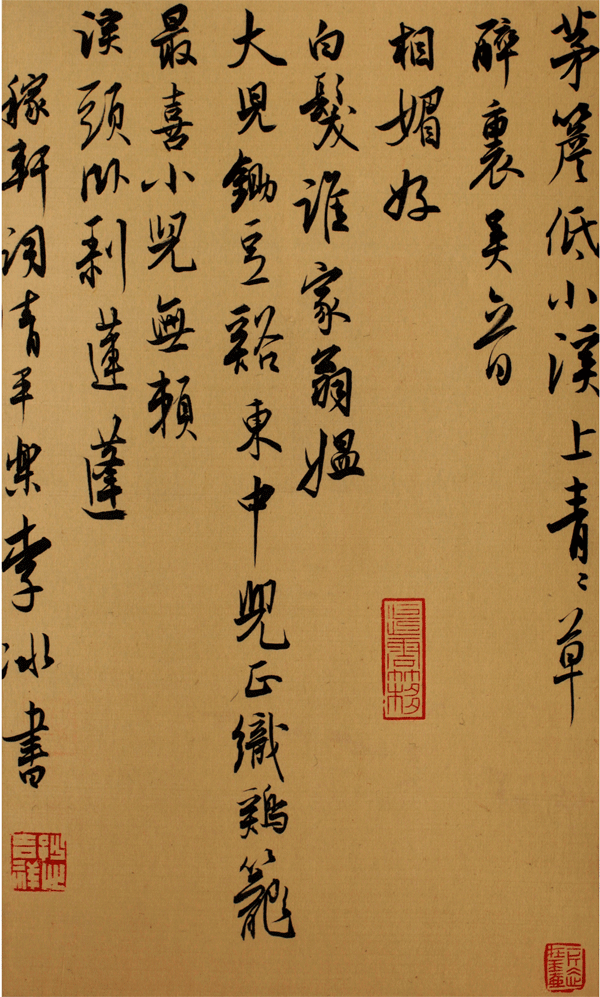 茅簷低小溪上青〻草
醉裏吴音
相媚好
白髮誰家翁媼
大兒鋤豆谿東中兒正織鷄籠
最喜小兒無賴
溪頭卧剥蓮蓬
稼軒詞清平樂李冰書